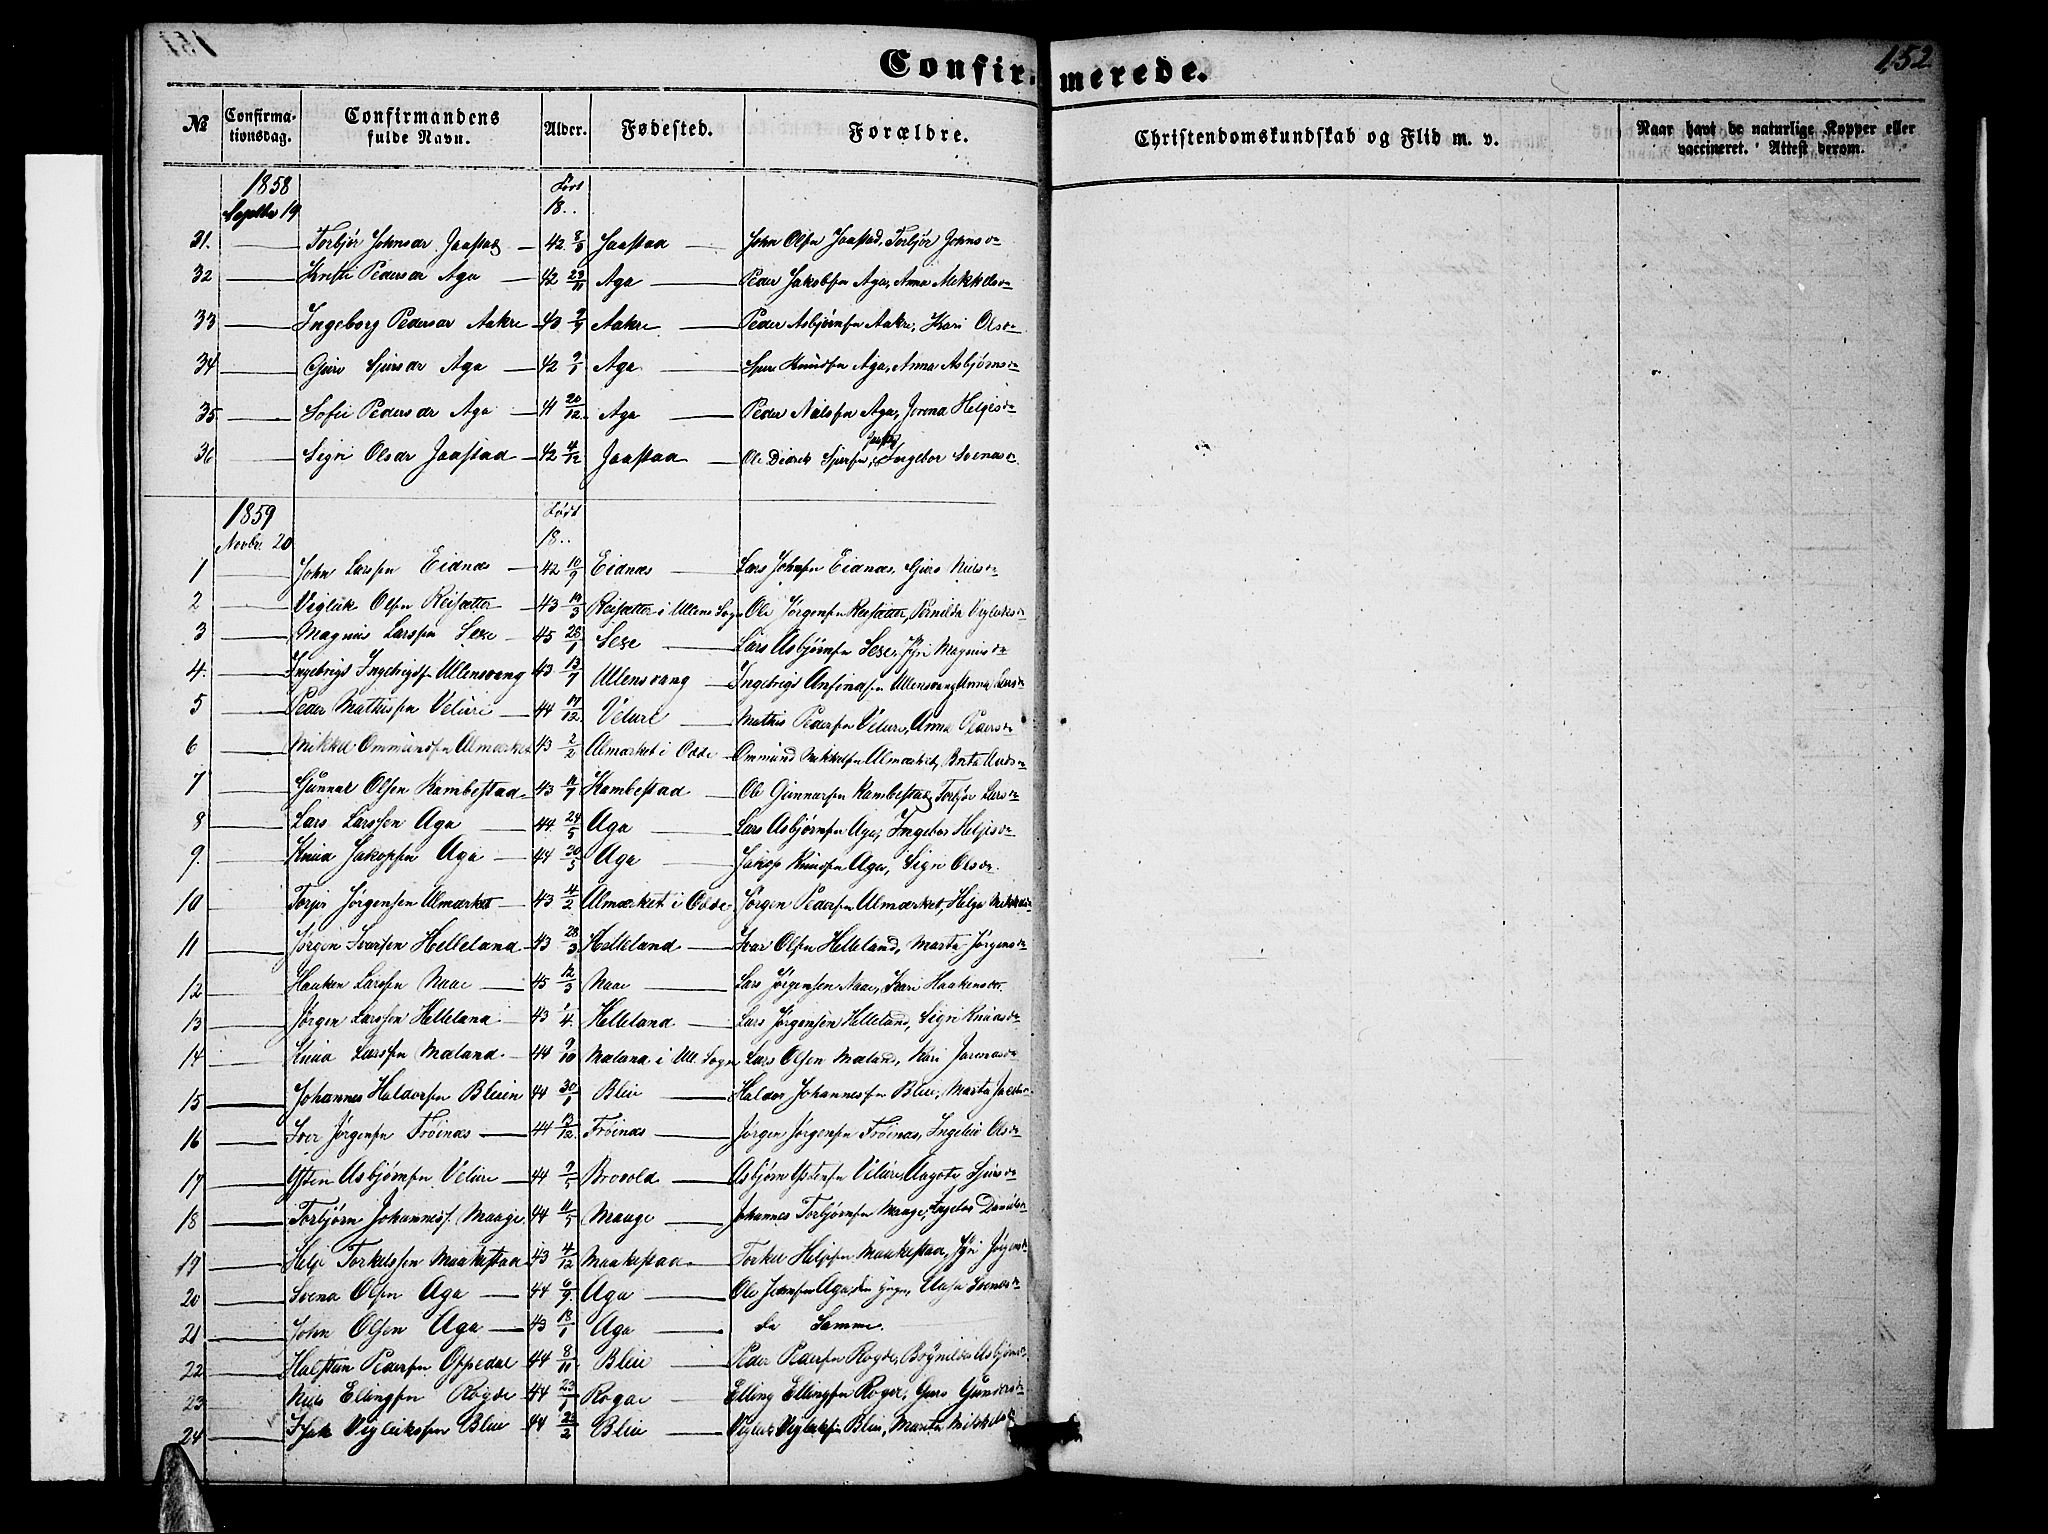 Confirmerede.
152
№ Confirmationsdag. Confirmandens fulde Navn. Alder. Fødested. Forældre. Christendomskundskab og Flid m. v. Naar havt de naturlige Kopper eller vaccineret. Attest derom.
1858 Født
Septbr 19 18..
31. Torbjør Johnsdr Jaastad 42 8/3 Jaastad John Olsen Jaastad, Torbjør Johnsdr
32 Pedersdr Aga 42 29/11 Aga Peder Jakobsen Aga, Anna Mikkelsdr
33 Ingeborg Pedersdr Aakre 43 Aakre Peder Asbjørnsen Aakre, Kari Olsdr
34 Guro Sjursdr Aga 42 Aga Sjur Knudsen Aga, Anna Asbjørnsdr
35 Sofie Pedersdr Aga 41 20/12 Aga Peder Nielsen Aga, Helgesdr
36 Sigri Olsdr Jaastad 42 4/12 Jaastad Ole Didrik Sjursen, Ingebor Svendsdr
1859 Født
Novbr 20 18..
1 John Larssen Eidnæs 42 10/9 Eidnæs Lars Johnsen Eidnæs, Guro Nilsdr
2 Vigluk Olsen Reisæter 43 19/3 Reisæter i Ullens Sogn Ole Jørgensen Reisæter, Pernilda Vigleksdr
3 Magnus Larssen Sexe 45 26/1 Sexe Lars Asbjørnsen Sexe, Magnusdr
4. Ingebrigt Ingebrigtsen Ullensvang 43 13/7 Ullensvang Ingebrigt Ullensvang, Anna Larsdr
5 Peder Mathissen Velure 44 17/12 Velure Mathis Pedersen Velure, Anna Pedersdr
6 Mikkel Ommundsen Almerket 43 2/2 Almerket i Odde Ommund Mikkelsen Almerket, Brita
7 Gunnar Olsen Kambestad 43 11/7 Kambestad Ole Gunnarsen Kambestad, Torbjør Larsdr
8 Lars Larssen Aga 44 24/5 Aga Lars Asbjørnsen Aga, Ingebor Helgesdr
9. Knud Jakopsen Aga 44 30/5 Aga Jakop Knudsen Aga, Sigri Olsdr
10 Jørgensen Almerket 43 4/2 Almerket i Odde Jørgen Pedersen Almerket, Helga Mikkelsdr
11 Jørgen Iversen Helleland 43 28/3 Helleland Ivar Olsen Helleland, Marta Jørgensdr
12 Haaken Larssen Naae 45 12/3 Naae Lars Jørgensen Naae, Kari Haakensdr.
13 Jørgen Larssen Helleland 43 1/4 Helleland Lars Jørgensen Helleland, Sigri Knudsdr
14 Knud Larssen Maland 44 9/10 Maland i Ull. Sogn Lars Olsen Maland, Kari
15 Johannes Haldorsen Bleien 44 30/1 Bleie Haldor Johannessen Bleie, Marta
16 Iver Jørgensen Frøinæs 44 13/12 Frøinæs Jørgen Jørgensen Frøinæs, Olsdr
17 Østen Asbjørnsen Velure 44 9/5 Brovold Asbjørn Østensen Velure, Aagota Sjursdr
18 Torbjørn Johanness. Maage 44 11/5 Maage Johannes Torbjørnsen Maage, Ingebor
19 Helje Torkelssen Maakestad 43 4/12 Maakestad Torkel Heljesen Maakestad, Jørgensdr
20 Svend Olsen Aga 44 6/9 Aga Ole Aga, den yngre, Svendsdr
21 John Olsen Aga 43 13/1 Aga de Samme.
22 Halsten Pedersen Opedal 44 8/11 Bleie Peder Pedersen Rogde, Asbjørnsdr
23 Nils Ellingsen Rogde 44 23/1 Rogde Elling Ellingsen Rogde, Guro Gundersdr
24 Isak Vigleikssen Bleie 44 2/2 Bleie Vigleik Vigleiksen Bleie, Marita Mikkelsd